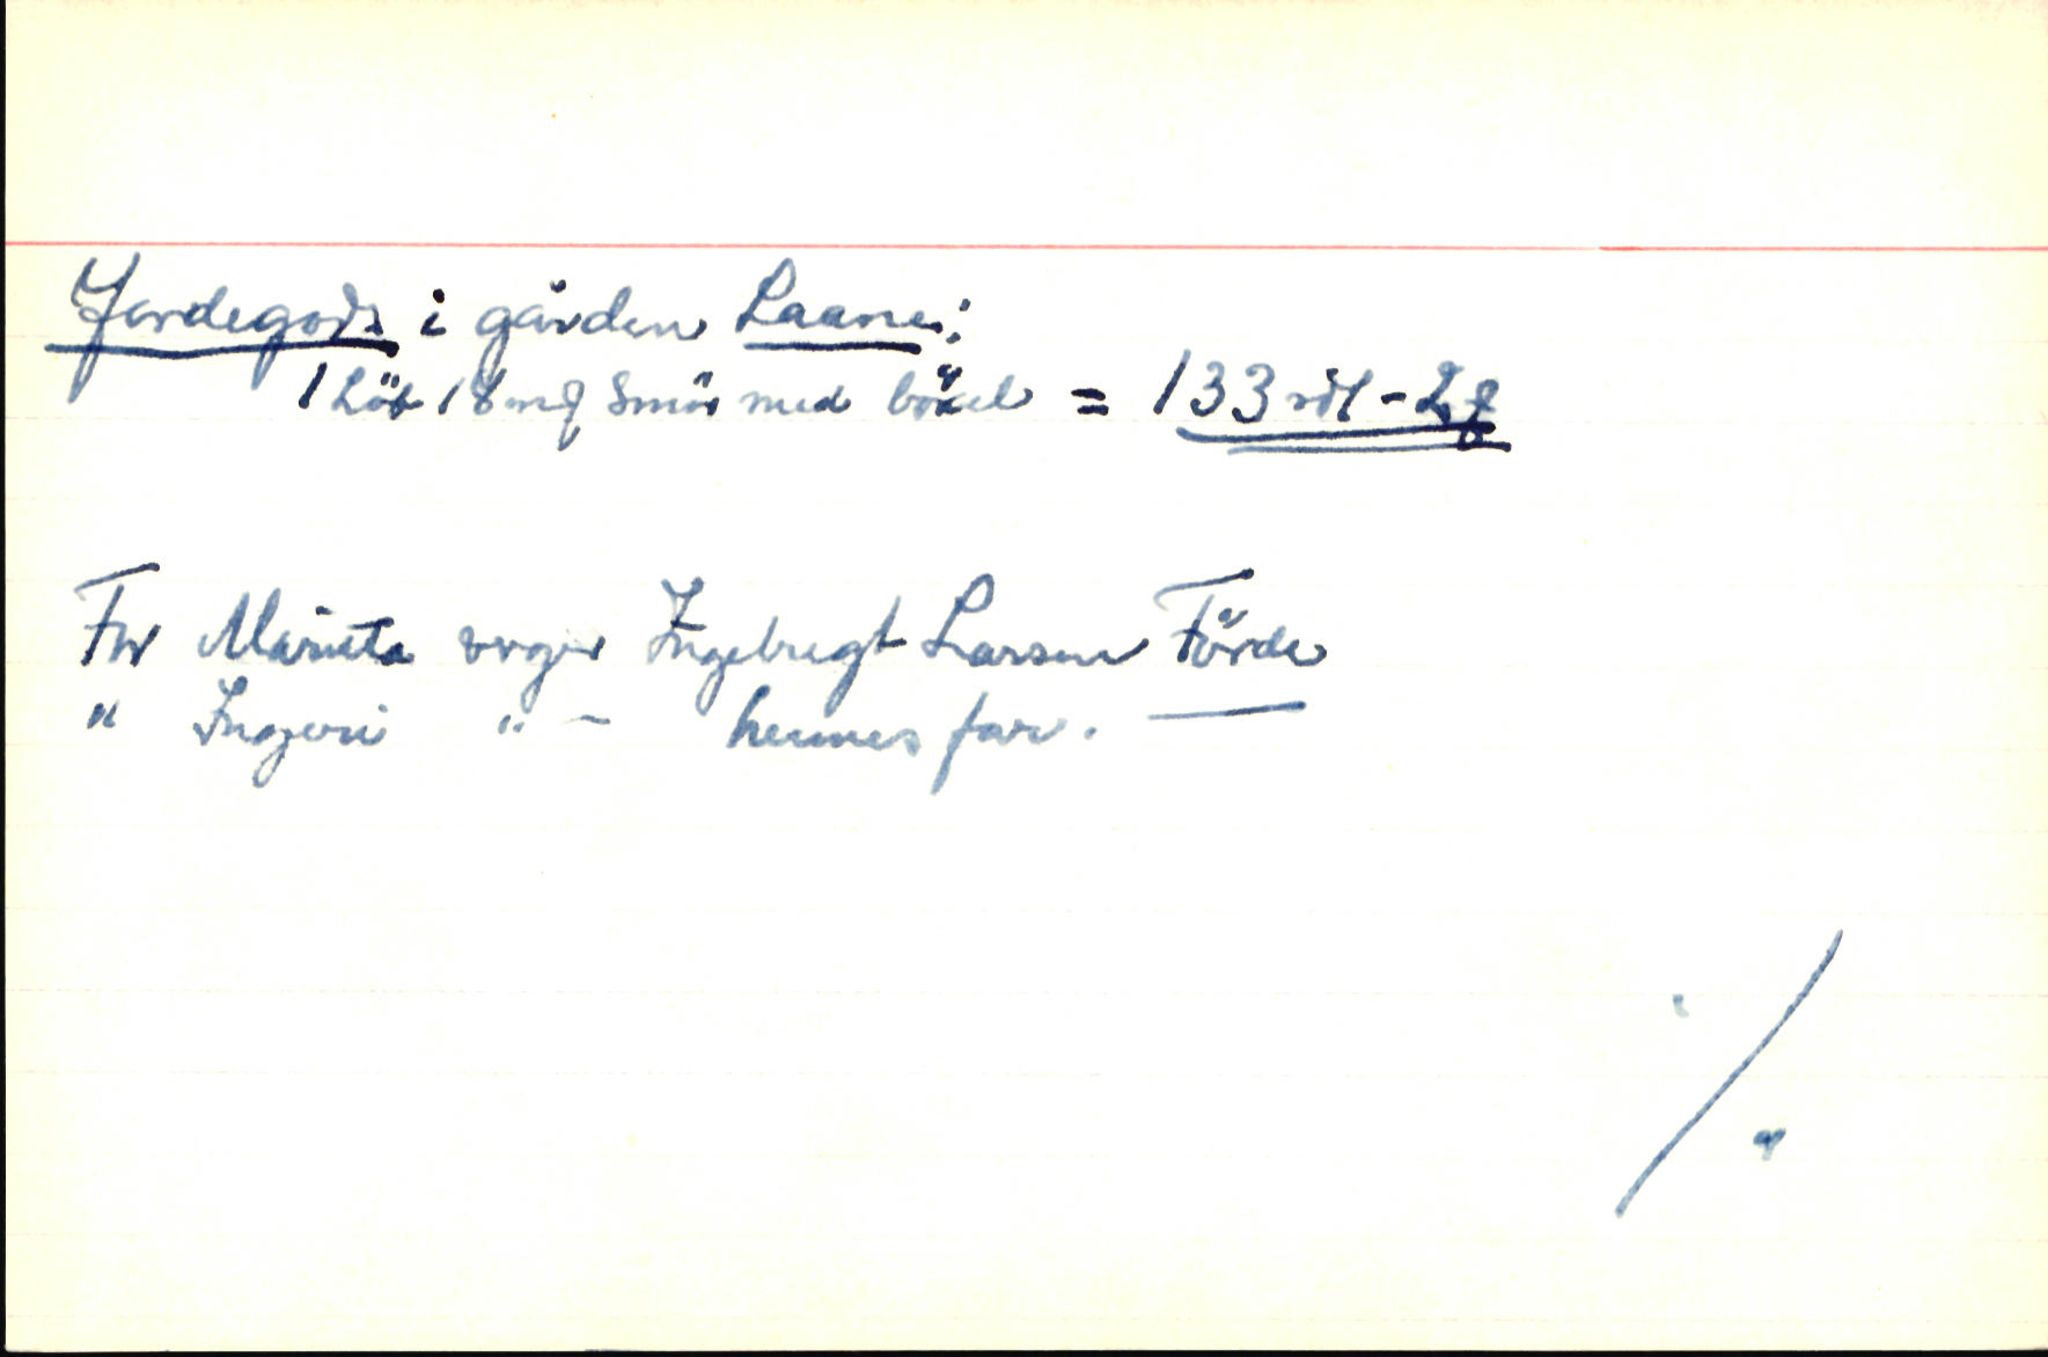 Jordegods i gården Laane:
1 Löb 18 mg Smör med böxel = 133 rdl - 2 ℔
For Marieta verger Ingebregt Larsen Förde
" Ingeri " - hennes far.
%